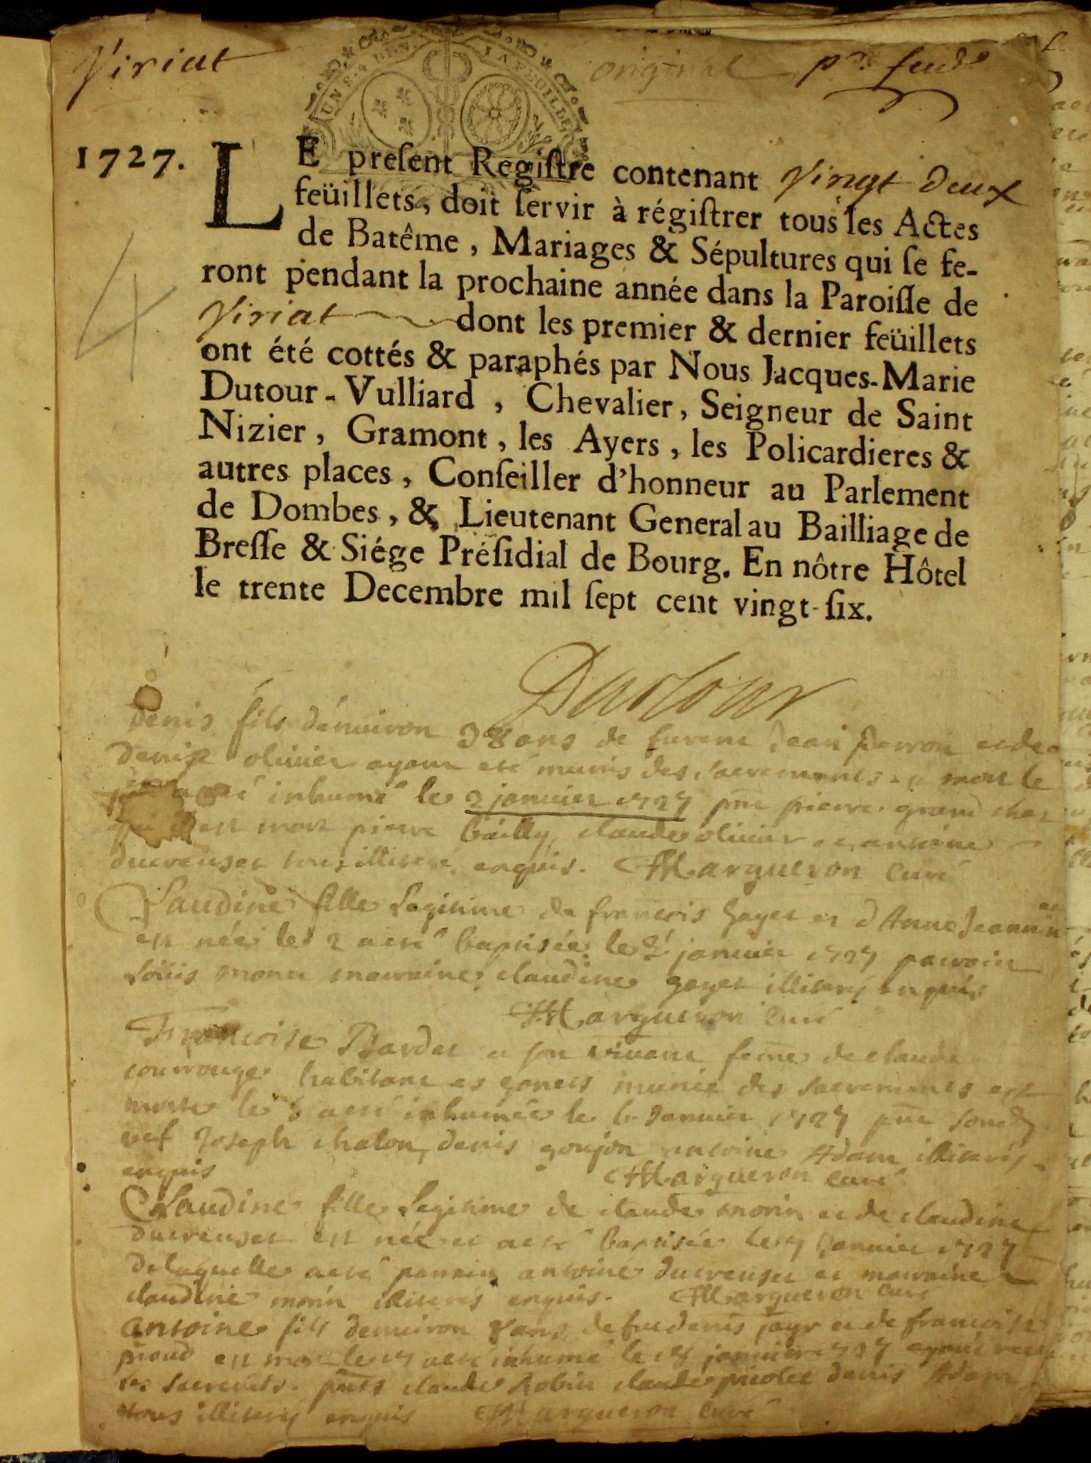 Viriat
original
UN S. 4 DEN. LA FEUILLE
1727.
LE preſent Regiſtre contenant Vingt Deux
feüillets, doit ſervir à régiſtrer tous les Actes
de Batême, Mariages & Sépultures qui ſe fe-
ront pendant la prochaine année dans la Paroiſſe de
Viriat dont les premier & dernier feüillets
ont été cottés & paraphés par Nous Jacques-Marie
Dutour-Vulliard, Chevalier, Seigneur de Saint
Nizier, Gramont, les Ayers, les Policardieres &
autres places, Conſeiller d'honneur au Parlement
de Dombes, & Lieutenant General au Bailliage de
Breſſe & Siége Préſidial de Bourg. En nôtre Hôtel
le trente Decembre mil ſept cent vingt-ſix.
4
Dutour
Denis fils d'enuiron ans de Jean et de
Denise oliuier ayant eté munis des sacrements mort le
inhumé le 3 januier 1727 pierre grand
mort pierre bailly, claude oliuier et antoine
ducreuset enquis. Margueron curé
Claudine fille Legitime de françois gayet et d'Anne Jeannin
est née le 2 a eté baptisée le januier 1727 parrain
Loüis marraine claudine gayet enquis
Margueron curé
Francoise Bardet son viuant feme de claude
habitant munie des sacrements est
morte le 5 a eté inhumée le 6 Januier 1727
Joseph chalon, denis goujon antoine Adam
enquis Margueron curé
Claudine fille Legitime de claude morin et de claudine
ducreuset est née et a eté baptisée le 7 Januier 1727
de laquelle a eté parrain antoine ducreuset et marraine
claudine morin enquis. Margueron curé
antoine fils denuiron 8 ans de denis et de francoise
est mort le a eté inhumé le januier 1727 ayant
claude Robin claude denis Adam
tous enquis Margueron curé